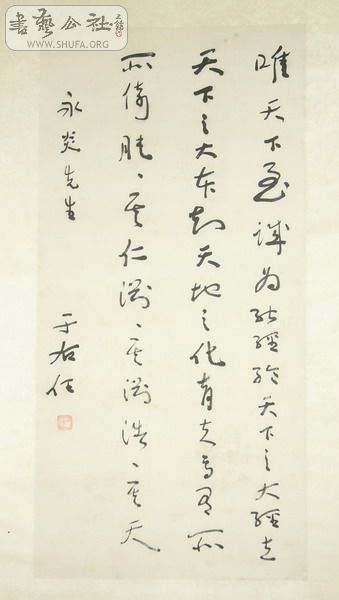 書藝公社
WWW.SHUFA.ORG
唯天下至誠為能經綸天下之大經立
天下之大本知天地之化育夫焉有所
所倚肫〻其仁淵〻其淵浩〻其天
永炎先生
于右任